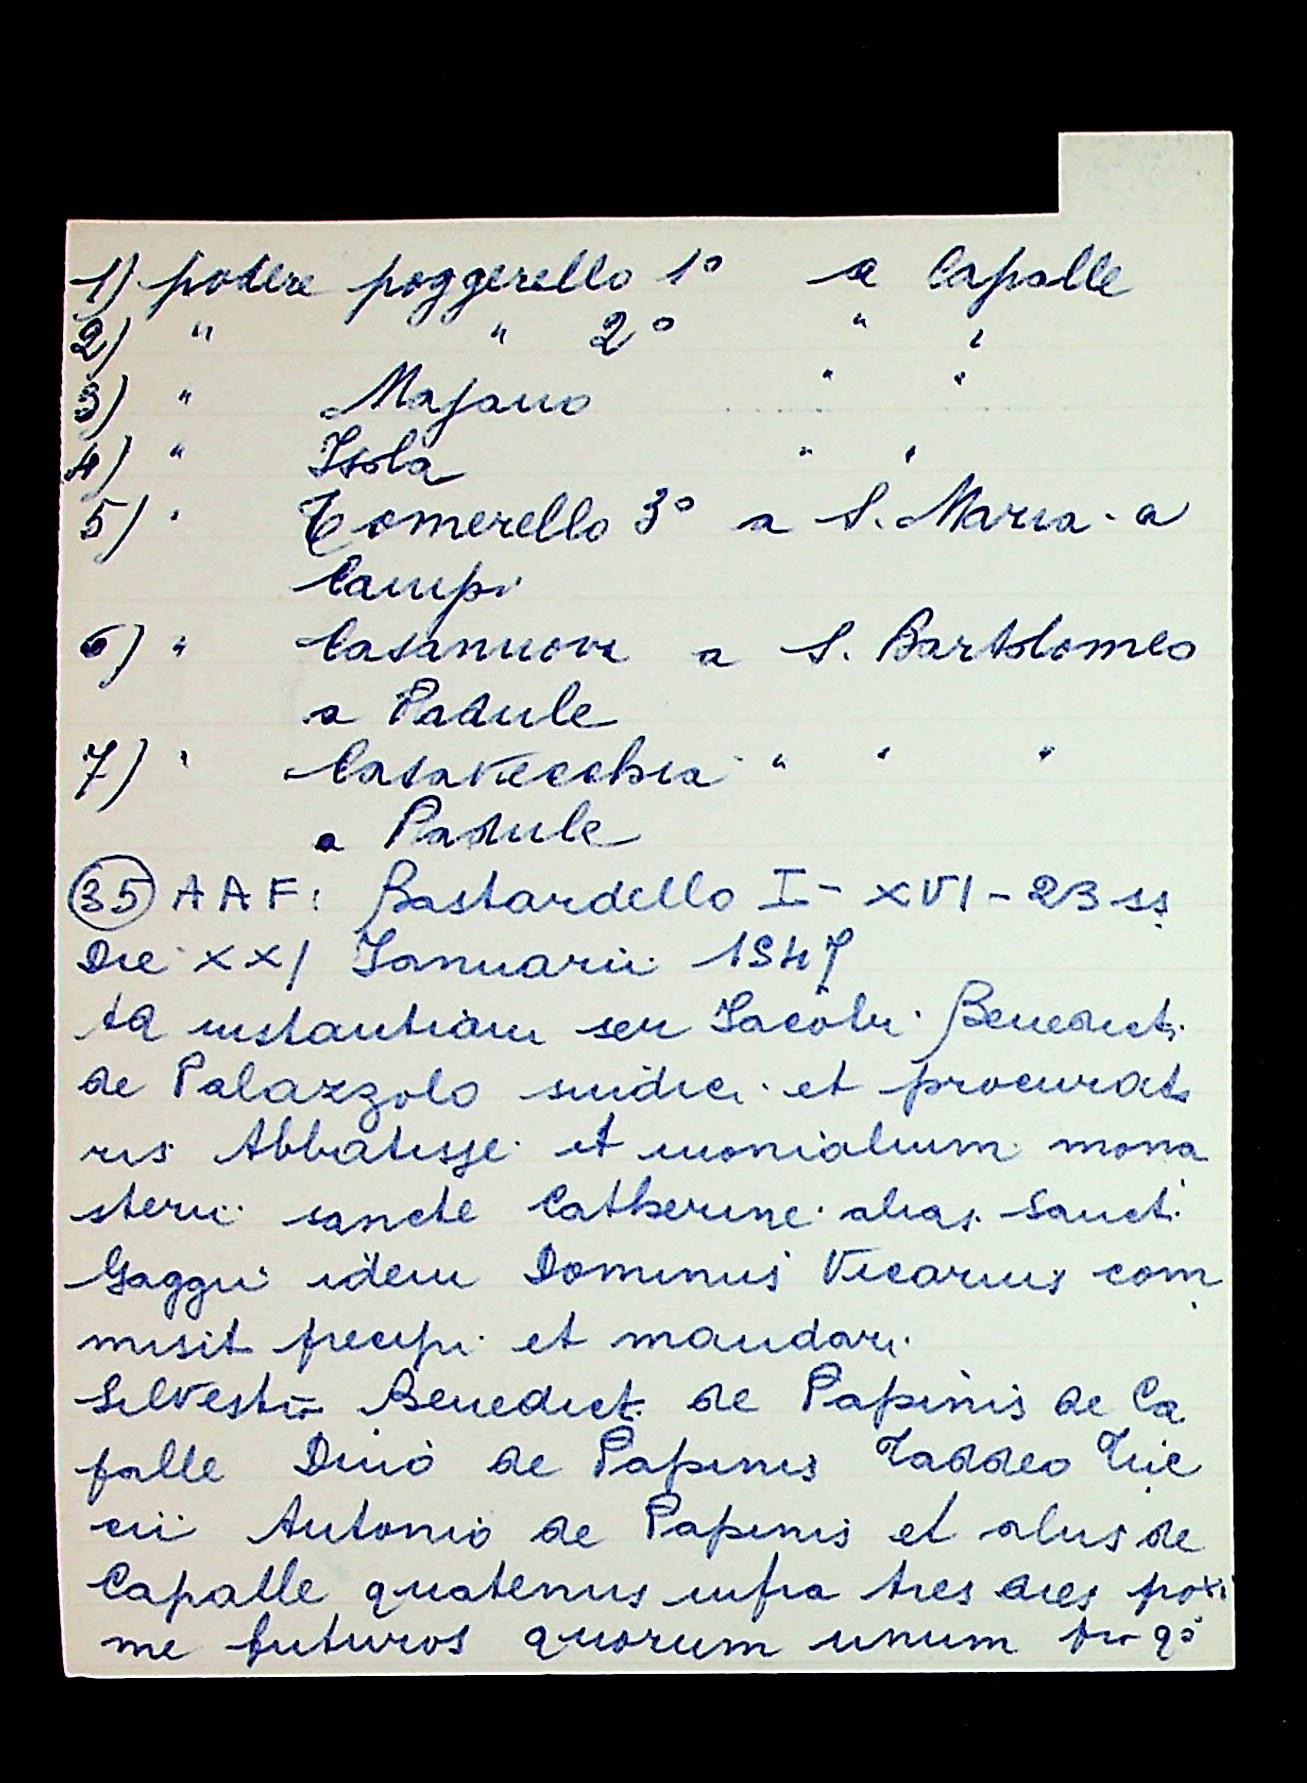 1) podere poggerello 1° a Capalle
2) " " 2° " "
3) " Majano " "
4) " Isola " "
5) " Tomerello 3° a S. Maria a
Campi
6) " Casanuova a S. Bartolomeo
a Padule
7) " Casavecchia " " "
a Padule
(35) AAF: Bastardello I - XVI - 23 ss
Die XXI Januarii 1547
Ad instantiam ser Jacobi Benedicti
de Palazzolo sindici et procurato
ris Abbatisse et monialium mona
sterii sancte Catherine alias Sancti
Gaggii idem Dominus Vicarius com
misit precipi et mandari
Silvestro Benedicti de Papinis de Ca
palle Dino de Papinis Taddeo
Antonio de Papinis et aliis de
Capalle quatenus infra tres dies proxi
me futuros quorum unum